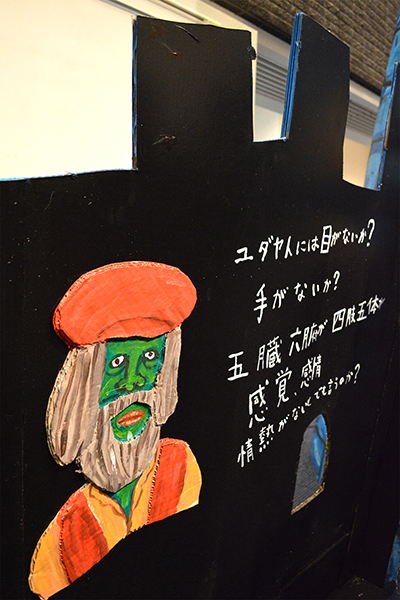 ユダヤ人には目がないか?
手がないか?
五臓六腑が四肢五体が
感覚、感情
情熱がないとでも言うのか?